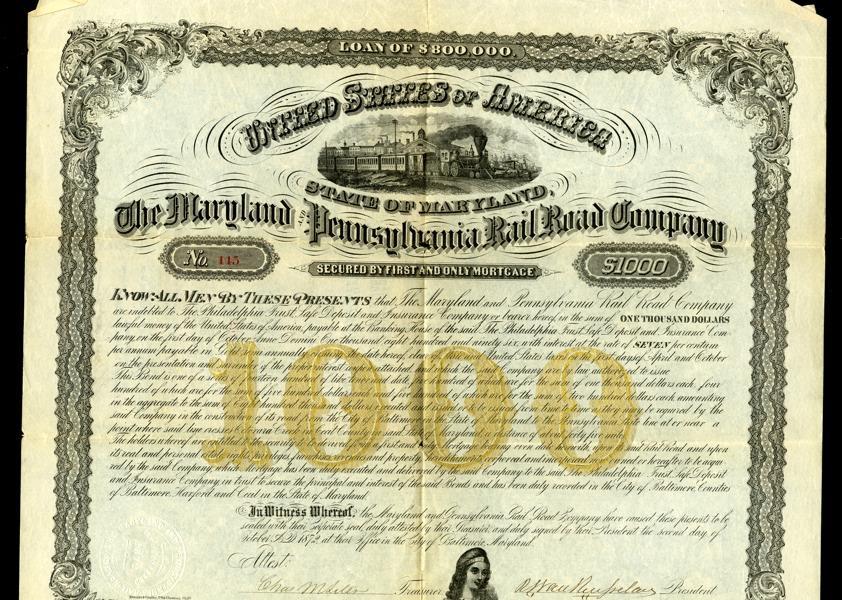 LOAN OF $800,000.
UNITED STATES OF AMERICA
STATE OF MARYLAND,
The Maryland AND Pennsylvania Rail Road Company
No. 145
$1000
SECURED BY FIRST AND ONLY MORTGAGE
KNOW ALL MEN BY THESE PRESENTS that The Maryland and Pennsylvania Rail Road Company
are indebted to The Philadelphia Trust Safe Deposit and Insurance Company or bearer hereof, in the sum of ONE THOUSAND DOLLARS
lawful money of the United States of America, payable at the Banking House of the said The Philadelphia Trust, Safe Deposit and Insurance Com-
pany, on the first day of October Anno Domini One thousand eight hundred and ninety six, with interest at the rate of SEVEN per centum
per annum payable in semi annually on the date hereof, clear of United States on the first days of April and October
on the presentation and surrender of the proper interest coupon attached, and which the said Company are by law authorized to issue
This Bond is one of a series of hundred of like tenor and date, hundred of which are for the sum of one thousand dollars each, four
hundred of which are for the sum of five hundred dollars each and five hundred of which are for the sum of two hundred dollars each amounting
in the aggregate to the sum of Eight hundred thousand dollars executed and issued or to be issued from time to time as they may be required by the
said Company in the construction of its road from The City of Baltimore in the State of Maryland to the Pennsylvania State line at or near a
point where said line crosses Cecil County in said State of Maryland a distance of about sixty five miles
The holders whereof are entitled to the security to be derived from a first and only Mortgage bearing even date herewith, upon the said Rail Road and upon
its real and personal estate rights privileges, franchises and corporate property real and personal corporeal and incorporeal now owned or hereafter to be acqui-
red by the said Company, which Mortgage has been duly executed and delivered by the said Company to the said The Philadelphia Trust, Safe Deposit
and Insurance Company, in trust to secure the principal and interest of the said Bonds and has been duly recorded in the City of Baltimore, Counties
of Baltimore, Harford and Cecil in the State of Maryland.
1000
In Witness Whereof, the Maryland and Pennsylvania Rail Road Company have caused these presents to be
sealed with their corporate seal, duly attested by their Treasurer, and duly signed by their President the second day of
October A.D. 1872, at their Office in the City of Baltimore, Maryland.
Attest:
Treasurer
President